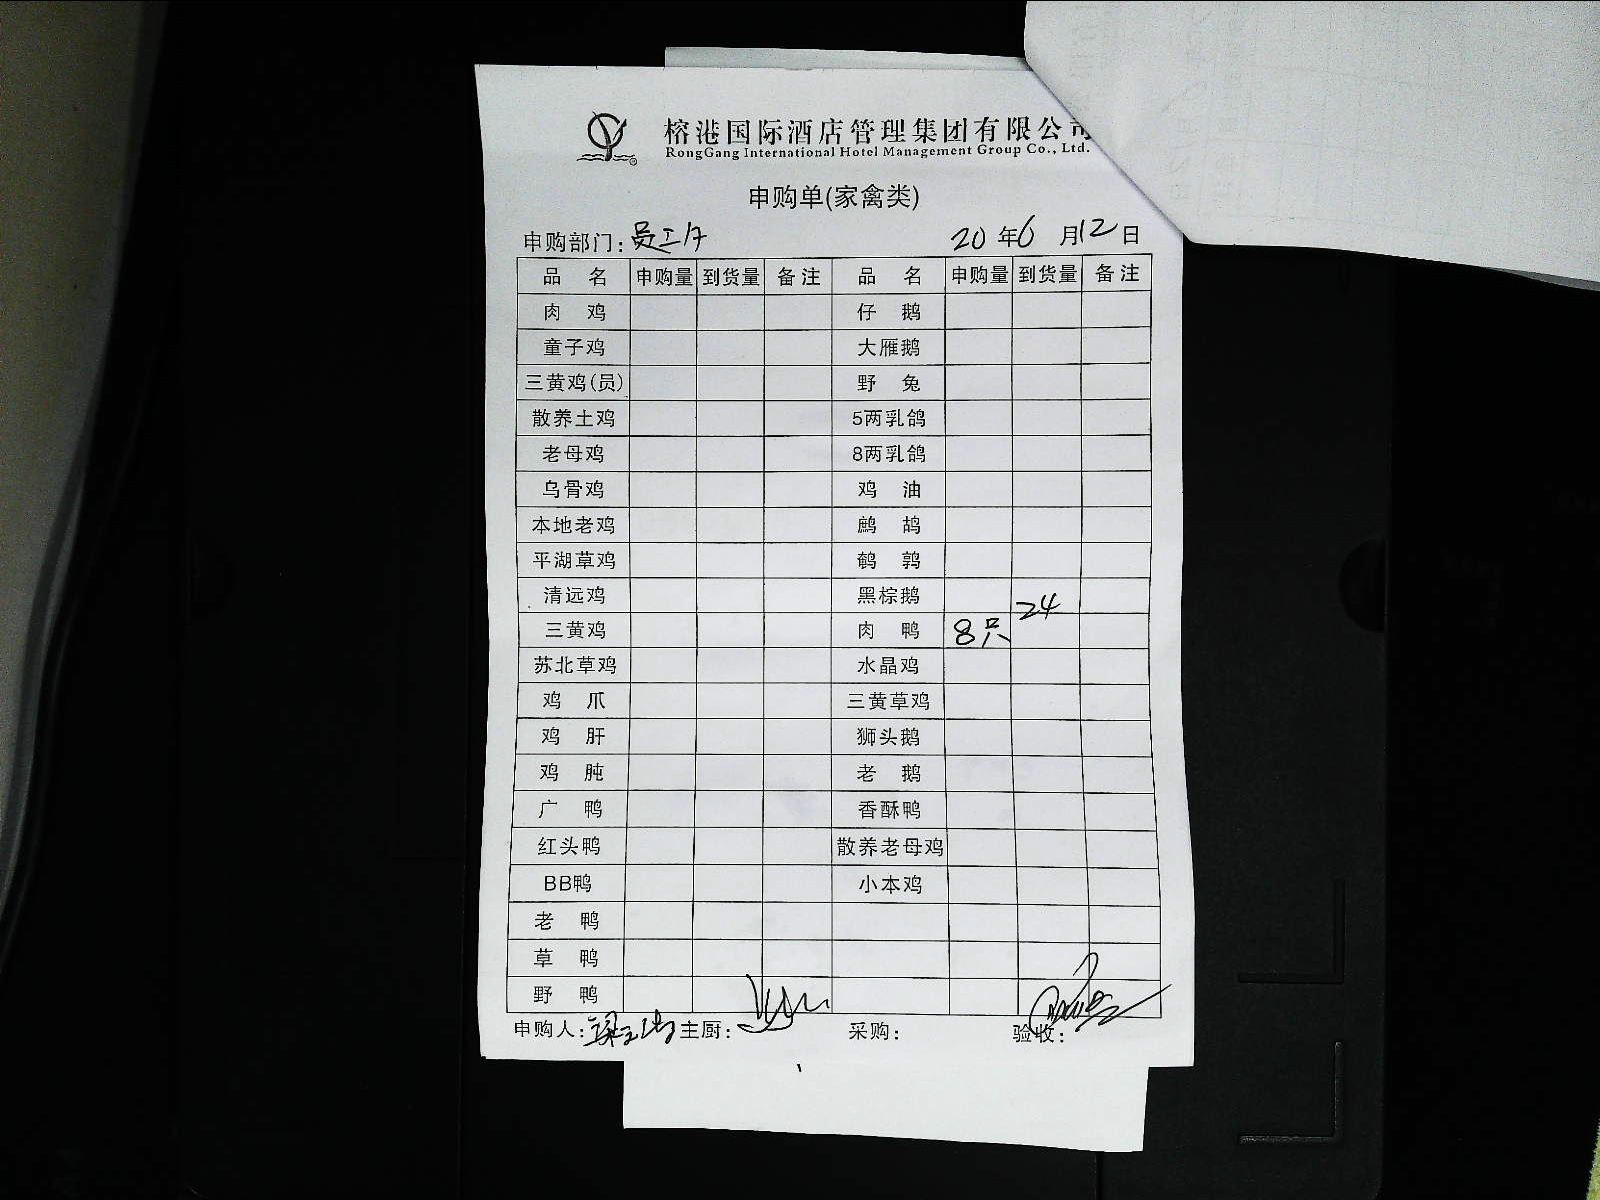 榕港国际酒店管理集团有限公司
RongGang International Hotel Management Group Co., Ltd.
申购单(家禽类)
申购部门：员工 20年6月12日
品 名 申购量 到货量 备注 品 名 申购量 到货量 备注
肉 鸡 仔 鹅
童子鸡 大雁鹅
三黄鸡(员) 野 兔
散养土鸡 5两乳鸽
老母鸡 8两乳鸽
乌骨鸡 鸡 油
本地老鸡 鹧 鸪
平湖草鸡 鹌 鹑
清远鸡 黑棕鹅
三黄鸡 肉 鸭 8只 24
苏北草鸡 水晶鸡
鸡 爪 三黄草鸡
鸡 肝 狮头鹅
鸡 肫 老 鹅
广 鸭 香酥鸭
红头鸭 散养老母鸡
BB鸭 小本鸡
老 鸭
草 鸭
野 鸭
申购人： 主厨： 采购： 验收：